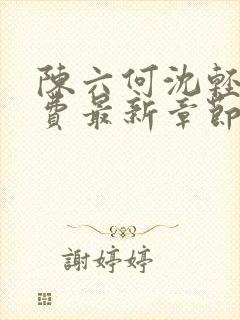 陳六何沈輕
費最新章節
謝婷婷